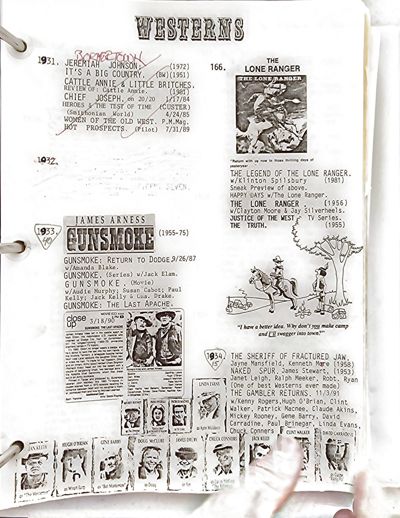 WESTERNS
1931.
JEREMIAH JOHNSON. (1972)
IT'S A BIG COUNTRY. (BW)(1951)
CATTLE ANNIE & LITTLE BRITCHES.
REVIEW OF: Cattle Annie. (1981)
CHIEF JOSEPH. on 20/20 1/17/84
HEROES & THE TEST OF TIME (CUSTER)
(Smithonian World) 4/24/85
WOMEN OF THE OLD WEST. P.M.Mag.
HOT PROSPECTS. (Pilot) 7/31/89
1932.
SEVEN.
1933.
JAMES ARNESS
GUNSMOKE (1955-75)
GUNSMOKE: RETURN TO DODGE 9/26/87
w/Amanda Blake.
GUNSMOKE. (Series) w/Jack Elam.
GUNSMOKE. (Movie)
w/Audie Murphy; Susan Cabot; Paul
Kelly; Jack Kelly & Gua. Drake.
GUNSMOKE: THE LAST APACHE.
close up
3/18/90
GUNSMOKE: THE LAST APACHE
166.
THE
LONE RANGER
THE LONE RANGER
"Return with us now to those thrilling days of
yesteryear
THE LEGEND OF THE LONE RANGER.
w/Klinton Spilsbury (1981)
Sneak Preview of above.
HAPPY DAYS w/The Lone Ranger.
THE LONE RANGER. (1956)
w/Clayton Moore & Jay Silverheels.
JUSTICE OF THE WEST. TV Series.
THE TRUTH. (1955)
"I have a better idea. Why don't you make camp
and I'll swagger into town?"
1934.
15
THE SHERIFF OF FRACTURED JAW.
Jayne Mansfield, Kenneth More (1958)
NAKED SPUR. James Stewart, (1953)
Janet Leigh, Ralph Meeker, Robt. Ryan
(One of best Westerns ever made)
THE GAMBLER RETURNS. 11/3/91
Kenny Rogers, Hugh O'Brian, Clint
Walker, Patrick Macnee, Claude Akins,
Mickey Rooney, Gene Barry, David
Carradine, Paul Brinegar, Linda Evans,
Chuck Connors
LINDA EVANS
HUGH O'BRIAN
as Wyatt Earp
GENE BARRY
as "Bat Masterson"
DOUG McCLURE
JAMES DRURY
CHUCK CONNORS
JACK KELLY
CLINT WALKER
DAVID CARRADINE